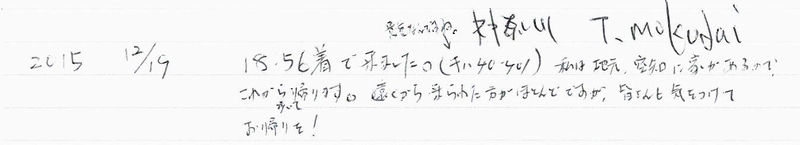 神奈川 T. Mokudai
2015 12/19 18:56着で来ました。(キハ40-401) 私は地元、空知に家があるので、
これから帰ります。遠くから来られた方がほとんどですが、皆さんも気をつけて
お帰りを!